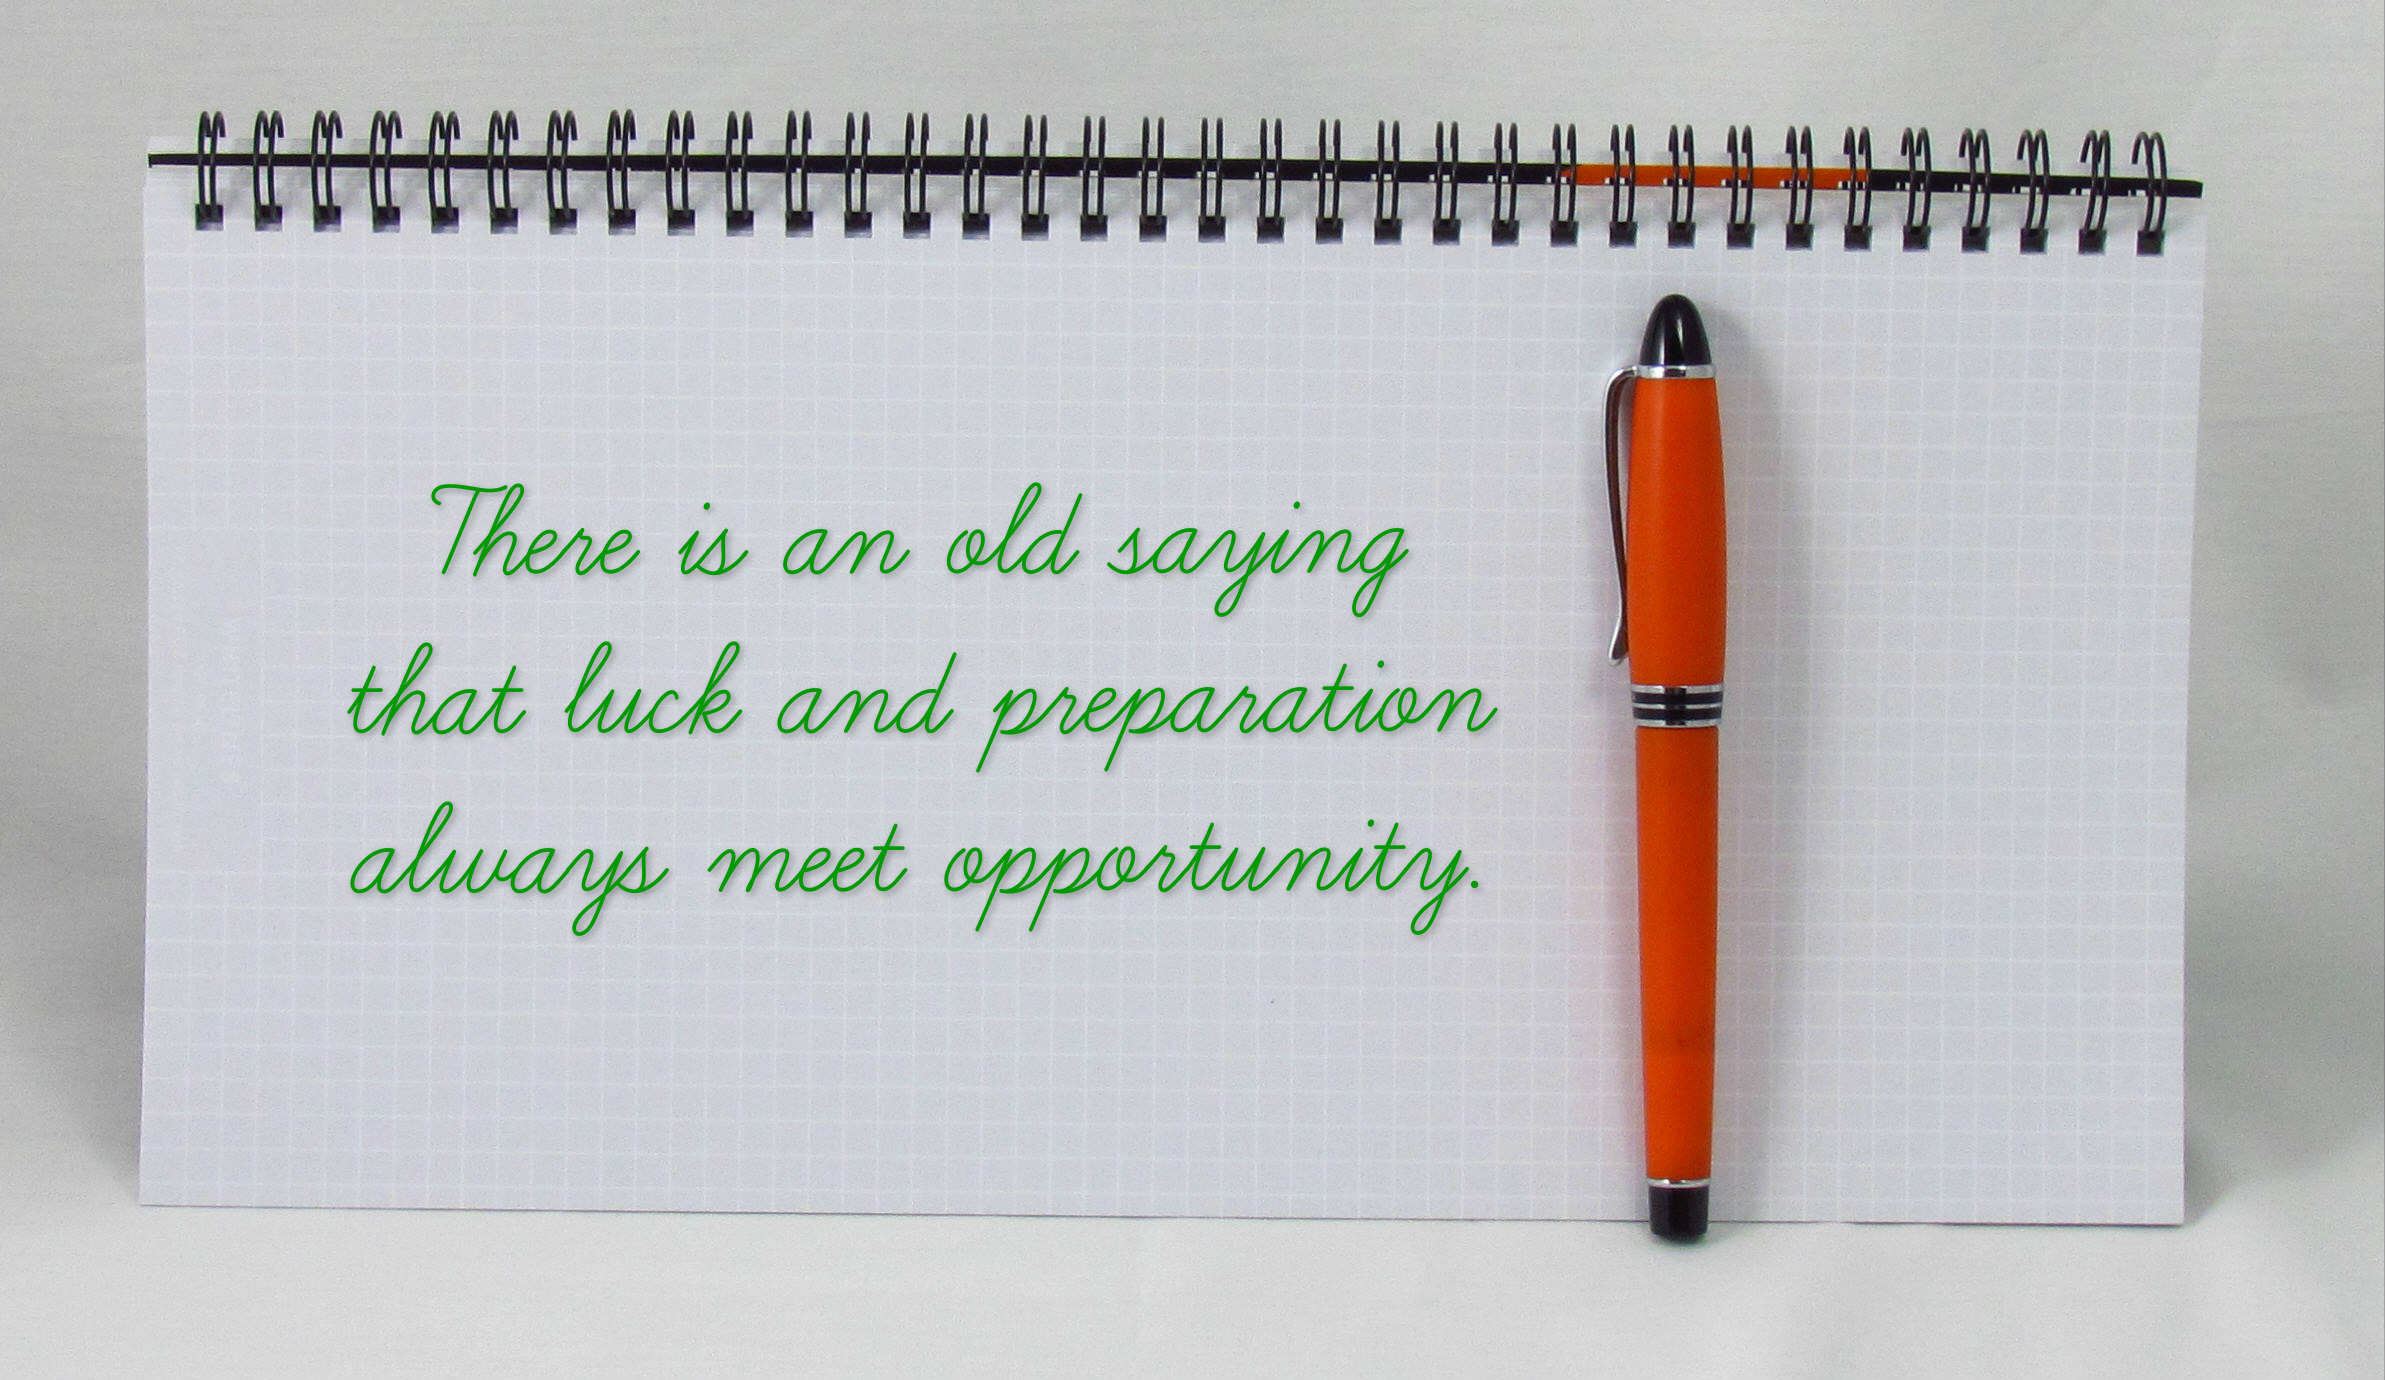 There is an old saying
that luck and preparation
always meet opportunity.